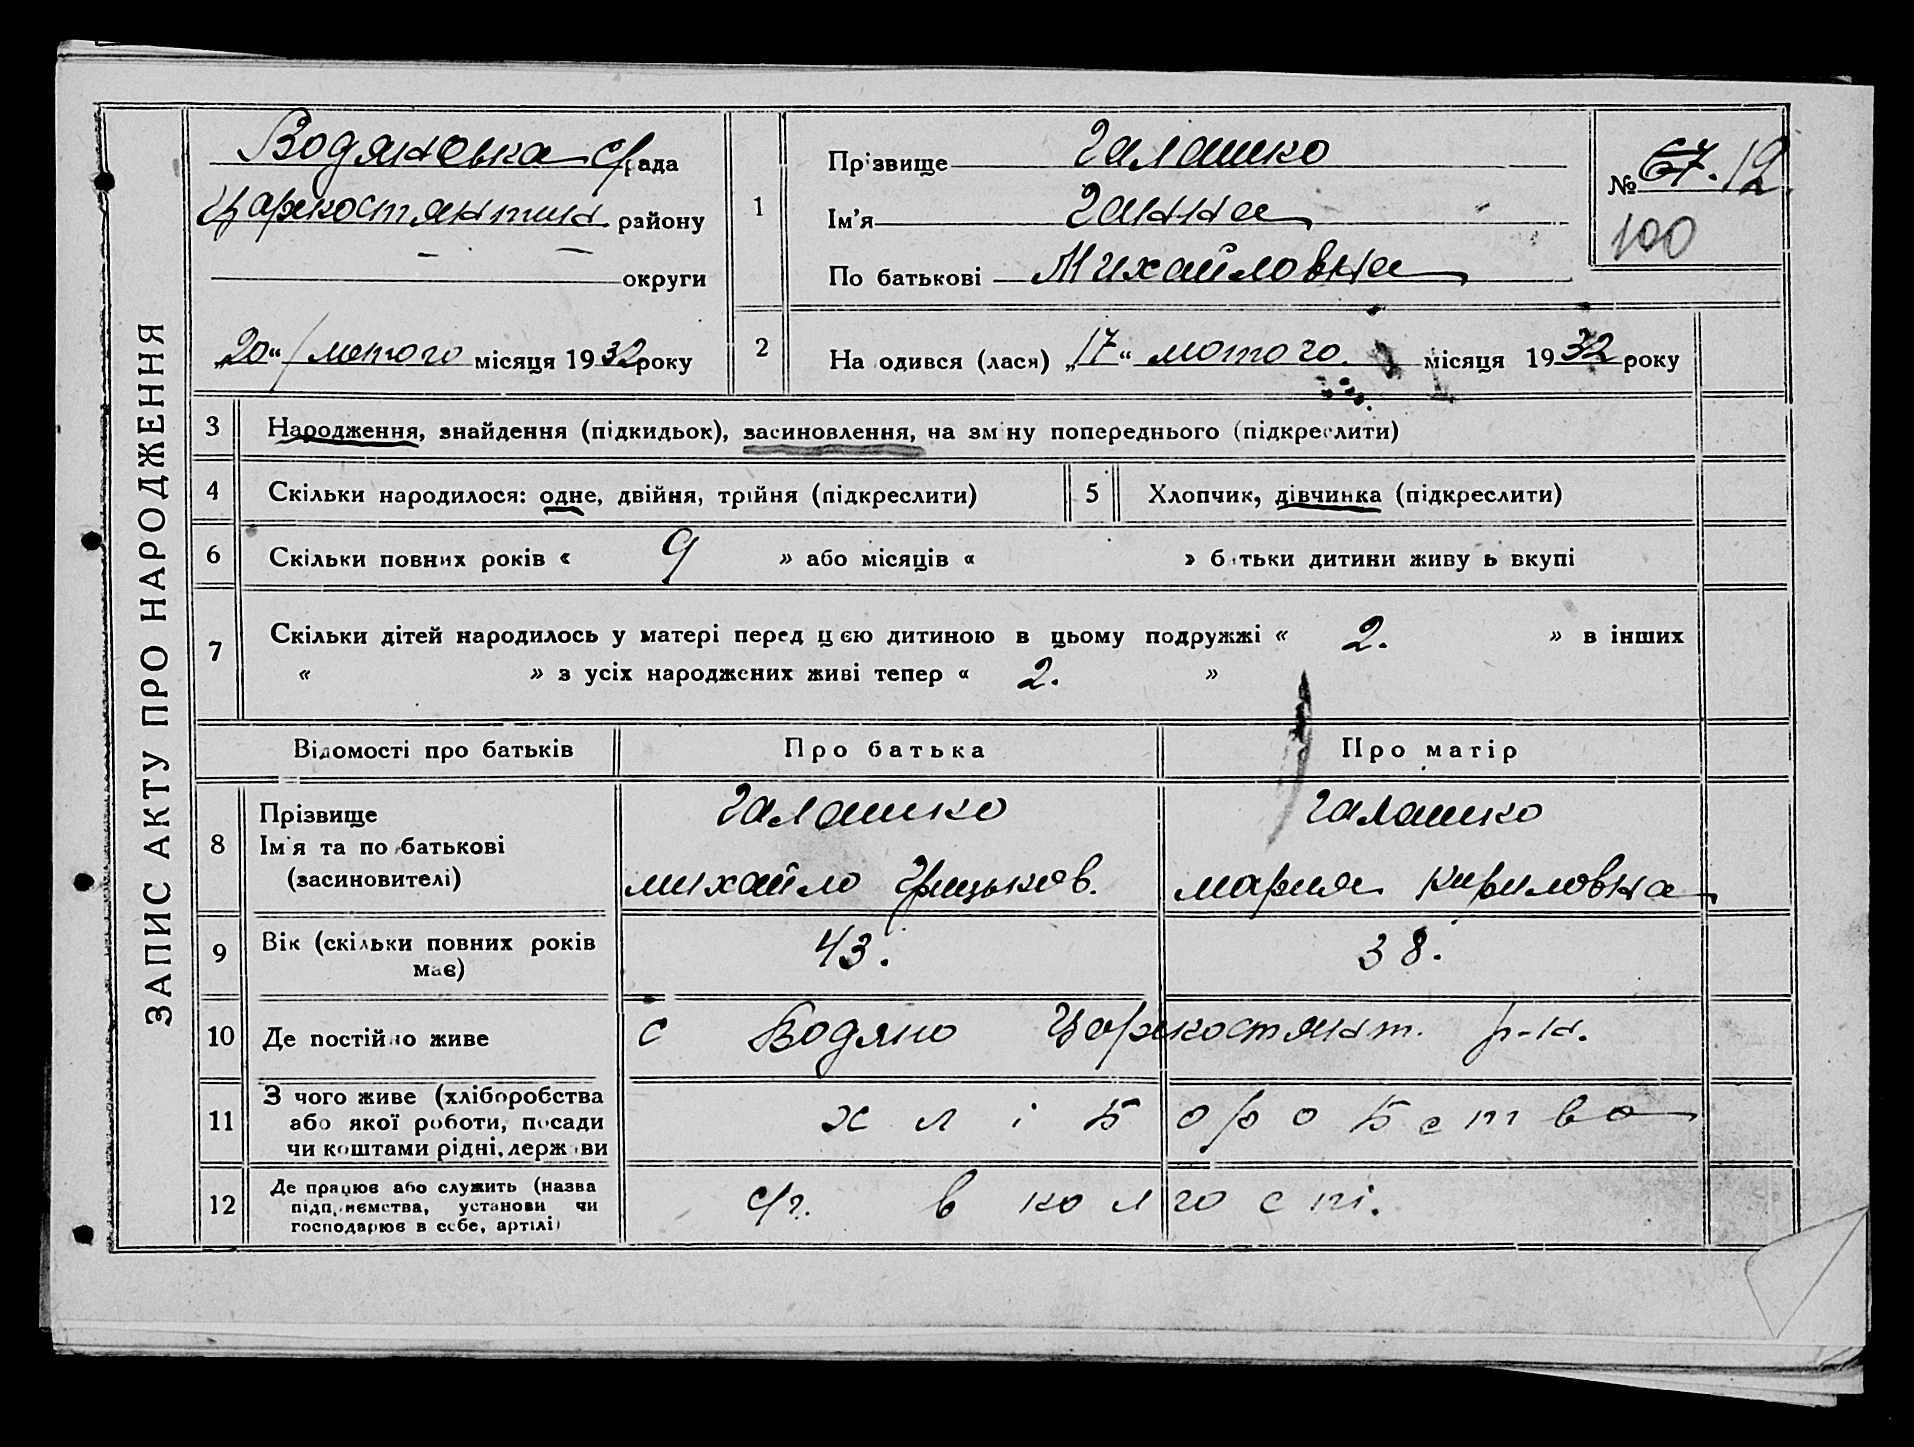 ЗАПИС АКТУ ПРО НАРОДЖЕННЯ
Водяновка с/рада
Царекостянтин району
— — округи
„20“ лютого місяця 1932 року
1
Прізвище Галашко
Ім'я Ганна
По батькові Михайловна
№ 67. 12.
100
2
На одився (лася) „17“ лютого місяця 1932 року
3 Народження, знайдення (підкидьок), засиновлення, на зм ну попереднього (підкреслити)
4 Скільки народилося: одне, двійня, трійня (підкреслити) 5 Хлопчик, дівчинка (підкреслити)
6 Скільки повних років « 9 » або місяців « » батьки дитини живу ь вкупі
7 Скільки дітей народилось у матері перед цією дитиною в цьому подружжі « 2. » в інших
« » з усіх народжених живі тепер « 2. »
Відомості про батьків Про батька Про матір
8 Прізвище
Ім'я та по батькові
(засиновителі)
Галашко
михайло Грицьков.
Галашко
мария Кириловна
9 Вік (скільки повних років має) 43. 38.
10 Де постійно живе с Водяно Царекостянт. р-н.
11 З чого живе (хліборобства
або якої роботи, посади
чи коштами рідні, держ ви
хліборобство
12 Де працює або служить (назва
підприємства, установи чи
господарює в себе, артілі)
с/г. в колгоспі.